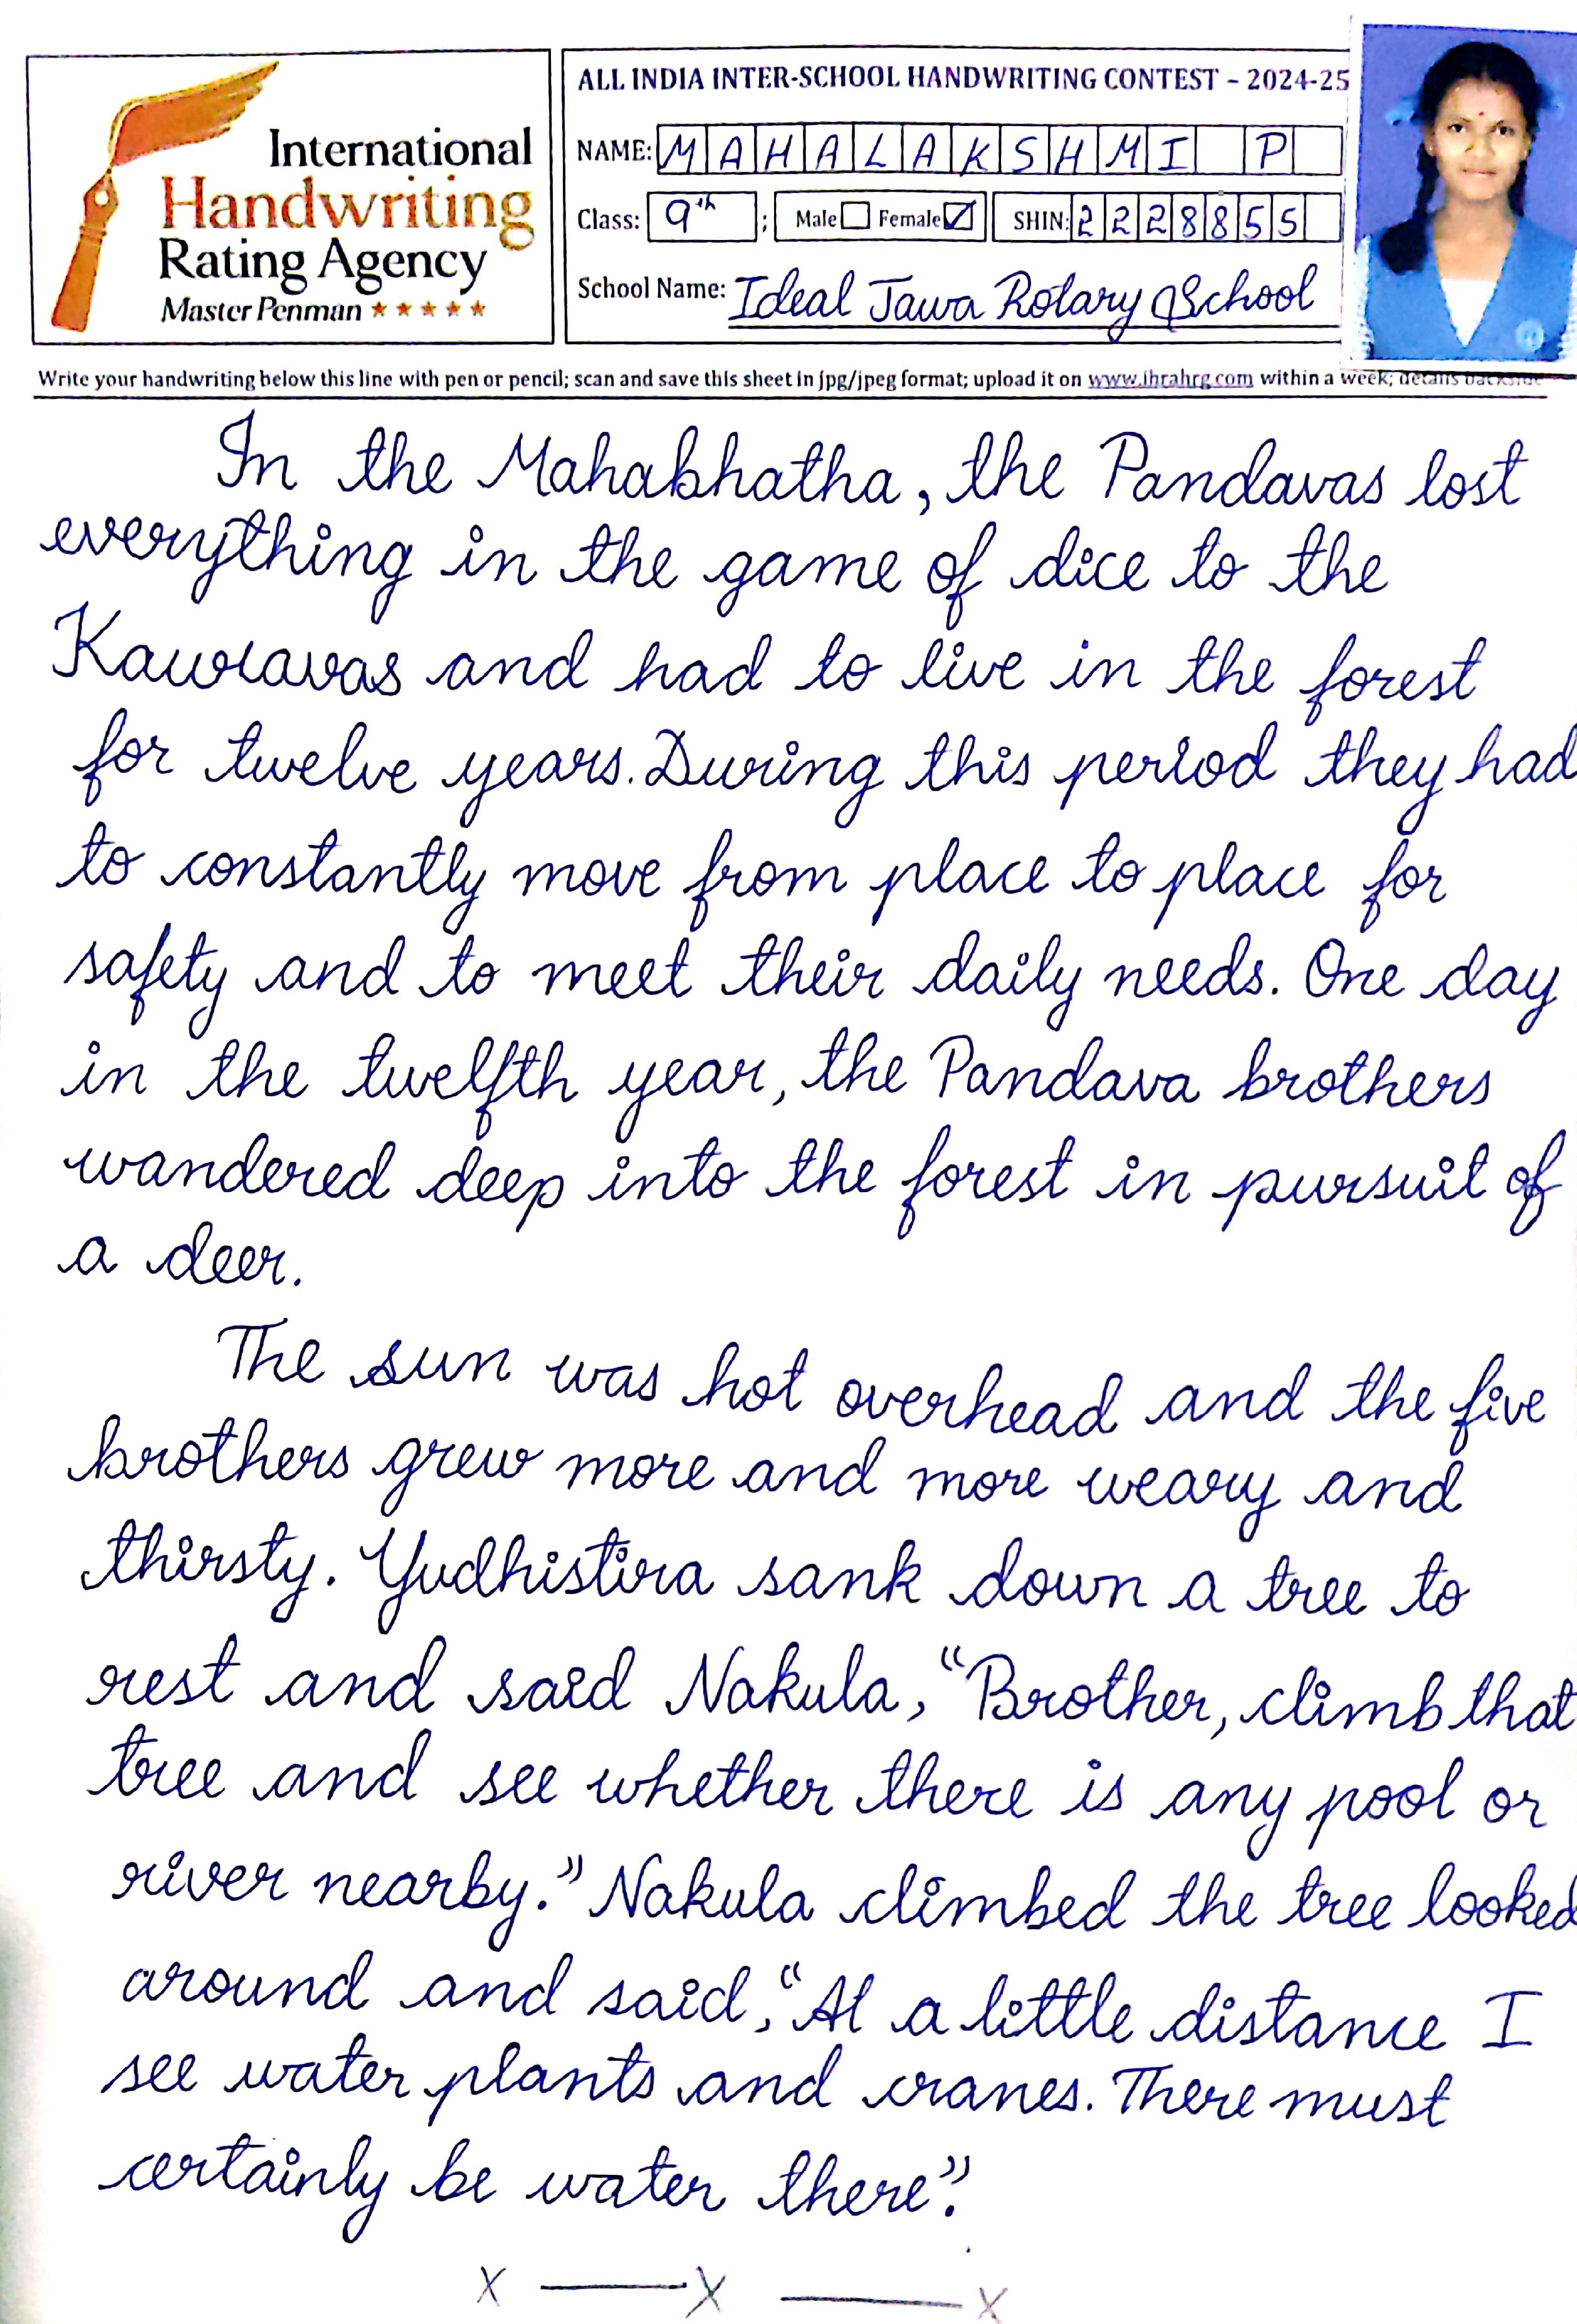 International
Handwriting
Rating Agency
Master Penman ★★★★★
ALL INDIA INTER-SCHOOL HANDWRITING CONTEST – 2024-25
NAME: MAHALAKSHMI P
Class: 9th ; Male Female SHIN: 2228855
School Name: Ideal Jawa Rotary School
Write your handwriting below this line with pen or pencil; scan and save this sheet in jpg/jpeg format; upload it on www.ihrahrg.com within a week; details backside
In the Mahabhatha, the Pandavas lost
everything in the game of dice to the
Kauravas and had to live in the forest
for twelve years. During this period they had
to constantly move from place to place for
safety and to meet their daily needs. One day
in the twelfth year, the Pandava brothers
wandered deep into the forest in pursuit of
a deer.
The sun was hot overhead and the five
brothers grew more and more weary and
thirsty. Yudhistira sank down a tree to
rest and said Nakula, “Brother, climb that
tree and see whether there is any pool or
river nearby.” Nakula climbed the tree looked
around and said, “At a little distance I
see water plants and cranes. There must
certainly be water there”.
x — x — x